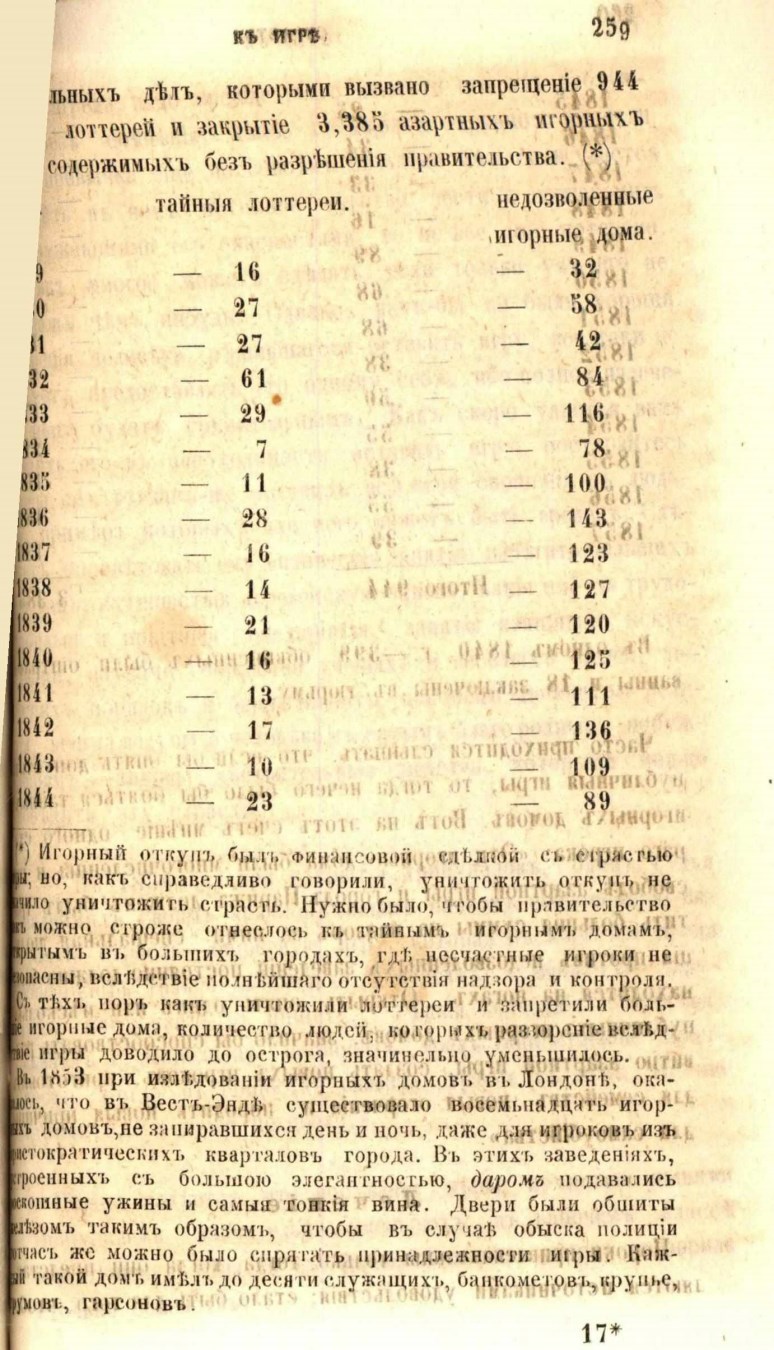 КЪ ИГРѢ. 259
льныхъ дѣлъ, которыми вызвано запрещеніе 944
лоттерей и закрытіе 3,385 азартныхъ игорныхъ
содержимыхъ безъ разрѣшенія правительства. (*)
тайныя лоттереи. недозволенные
игорные дома.
9 — 16 — 32
0 — 27 — 58
31 — 27 — 42
32 — 61 — 84
833 — 29 — 116
834 — 7 — 78
835 — 11 — 100
1836 — 28 — 143
1837 — 16 — 123
1838 — 14 — 127
1839 — 21 — 120
1840 — 16 — 125
1841 — 13 — 111
1842 — 17 — 136
1843 — 10 — 109
1844 — 23 — 89
*) Игорный откупъ былъ финансовой сдѣлкой съ страстью
но, какъ справедливо говорили, уничтожить откупъ не
уничтожить страсть. Нужно было, чтобы правительство
можно строже отнеслось къ тайнымъ игорнымъ домамъ,
крытымъ въ большихъ городахъ, гдѣ несчастные игроки не
опасны, вслѣдствіе полнѣйшаго отсутствія надзора и контроля.
Съ тѣхъ поръ какъ уничтожили лоттереи и запретили боль-
игорные дома, количество людей, которыхъ раззореніе вслѣд-
игры доводило до острога, значинельно уменьшилось.
Въ 1853 при излѣдованіи игорныхъ домовъ въ Лондонѣ, ока-
лось, что въ Вестъ-Эндѣ существовало восемьнадцать игор-
домовъ,не запиравшихся день и ночь, даже для игроковъ изъ
истократическихъ кварталовъ города. Въ этихъ заведеніяхъ,
троенныхъ съ большою элегантностью, даромъ подавались
скошные ужины и самыя тонкія вина. Двери были обшиты
елѣзомъ такимъ образомъ, чтобы въ случаѣ обыска полиціи
тчасъ же можно было спрятать принадлежности игры. Каж-
такой домъ имѣлъ до десяти служащихъ, банкометовъ, крупье,
румовъ, гарсоновъ.
17*